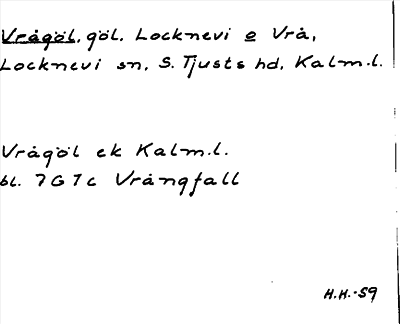 Vrågöl, göl, Locknevi o Vrå,
Locknevi sn, S. Tjusts hd, Kalm.l.
Vrågöl ek Kalm.l.
bl. 7G7c Vrångfall
H.H.-59